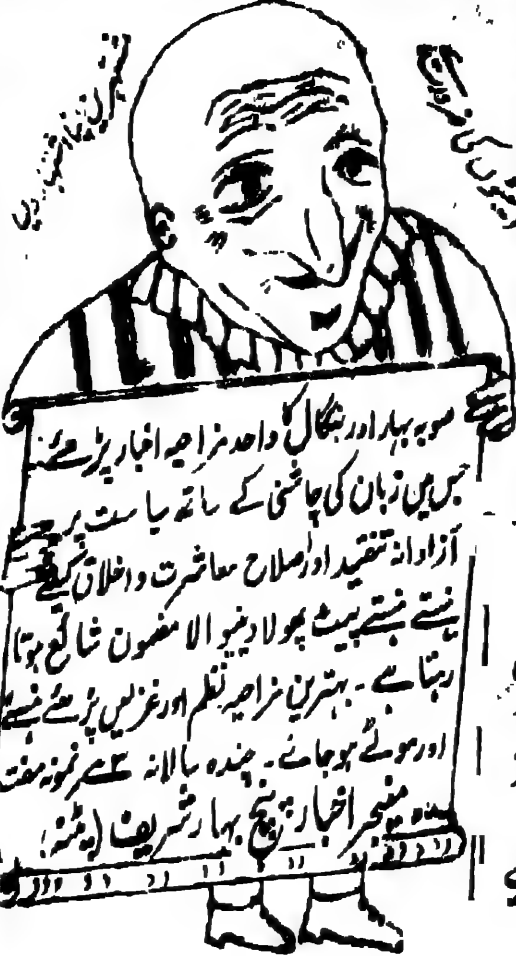 مشتہرین اپنا اشتہار دیں
کی ضرورت
صوبہ بہار اور بنگال کا واحد مزاحیہ اخبار پڑھئے۔
جس میں زبان کی چاشنی کے ساتھ سیاست پر
آزادانہ تنقید اور اصلاح معاشرت و اخلاق کیلئے
ہنستے ہنستے پیٹ پھولا دینیوالا مضمون شائع ہوتا
رہتا ہے۔ بہترین مزاحیہ نظم اور غزلیں پڑھئے ہنسئے
اور موٹے ہوجائے۔ چندہ سالانہ نمونہ مفت
منیجر اخبار پنچ بہار شریف (پٹنہ)